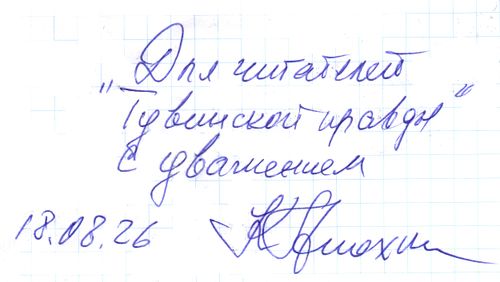 „Для читателей
Тувинской правды“
С уважением
18.08.26